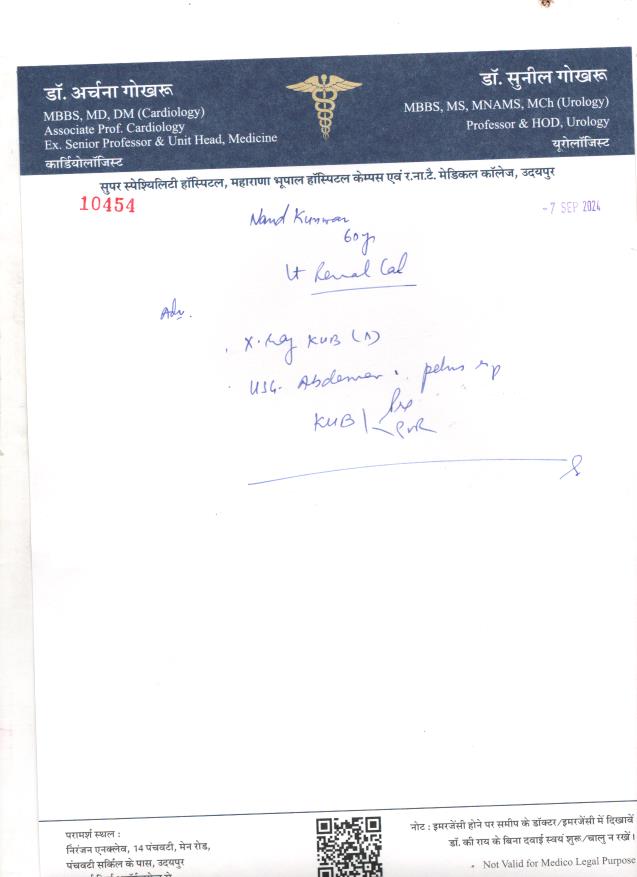 डॉ. अर्चना गोखरू
MBBS, MD, DM (Cardiology)
Associate Prof. Cardiology
Ex. Senior Professor & Unit Head, Medicine
कार्डियोलॉजिस्ट
डॉ. सुनील गोखरू
MBBS, MS, MNAMS, MCh (Urology)
Professor & HOD, Urology
यूरोलॉजिस्ट
सुपर स्पेश्यिलिटी हॉस्पिटल, महाराणा भूपाल हॉस्पिटल केम्पस एवं र.ना.टै. मेडिकल कॉलेज, उदयपुर
10454
-7 SEP 2024
Nand Kunwar
60y
Lt Renal Cal
Adv.
X-ray KUB (A)
USG. Abdomen pelvis
KUB Pre
PVR
परामर्श स्थल :
निरंजन एनक्लेव, 14 पंचवटी, मेन रोड,
पंचवटी सर्किल के पास, उदयपुर
नोट : इमरजेंसी होने पर समीप के डॉक्टर/इमरजेंसी में दिखावें
डॉ. की राय के बिना दवाई स्वयं शुरू/चालु न रखें।
Not Valid for Medico Legal Purpose